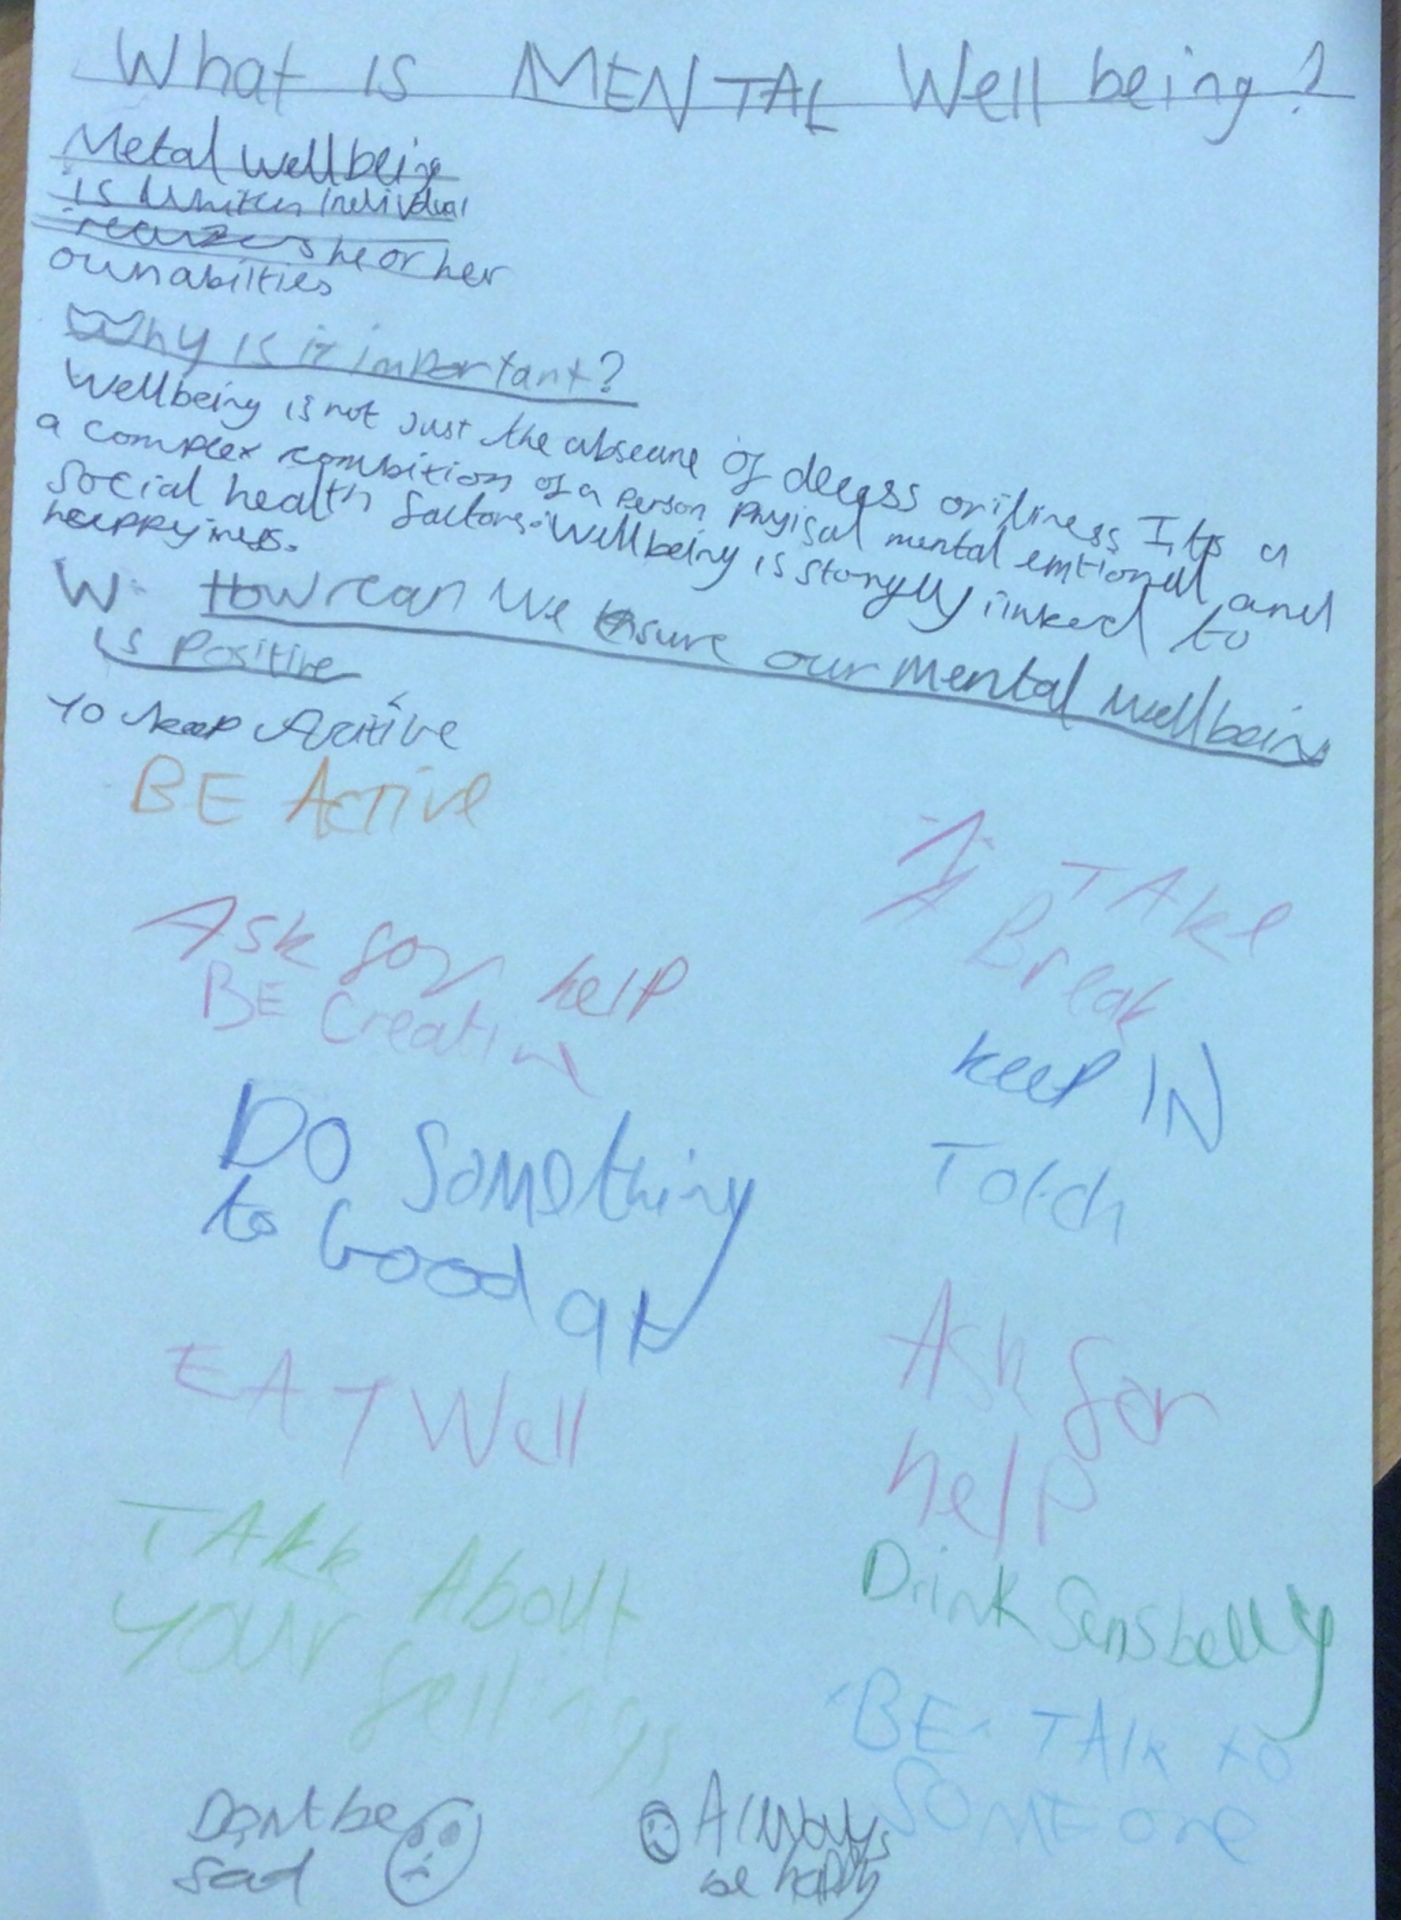 What is MENTAL Well being?
Metal wellbeing
is individual
realizes he or her
own abilties
Why is it important?
Wellbeing is not Just the abseane of decess or illness Its a
a complex combition of a person Phyisal mental emtional and
social health factors. Wellbeing is storngly linked to
happyiness.
W. How can we Esure our mental wellbeing
is Positive
To keep Acitive
BE Active
TAke
A Break
Ask for help
BE Creative
keep IN
Totch
Do Something
to Good at
EAT Well
Ask for
help
TAlk About
YOUr fellings
Drink Sensbelly
BE TAlk to
SOMEone
Dont be
sad
Always
be happy